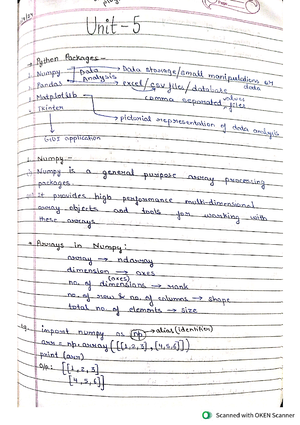 Unit - 5
Python Packages -
1. Numpy → Data Analysis → Data storage/small manipulations on data
2. Pandas → excel/csv files/database
comma separated values files
3. Matplotlib → pictorial representation of data analysis
4. Tkinter
GUI application
1. Numpy -
Numpy is a general purpose array processing
packages.
It provides high performance multi-dimensional
array objects and tools for working with
these arrays.
Arrays in Numpy :
array → ndarray
dimension → axes
(axes)
no. of dimensions → rank
no. of row & no. of columns → shape
total no. of elements → size
eg. import numpy as np → alias (identifier)
arr = np.array([[1,2,3],[4,5,6]])
print (arr)
O/p: [[1,2,3]
[4,5,6]]
Scanned with OKEN Scanner